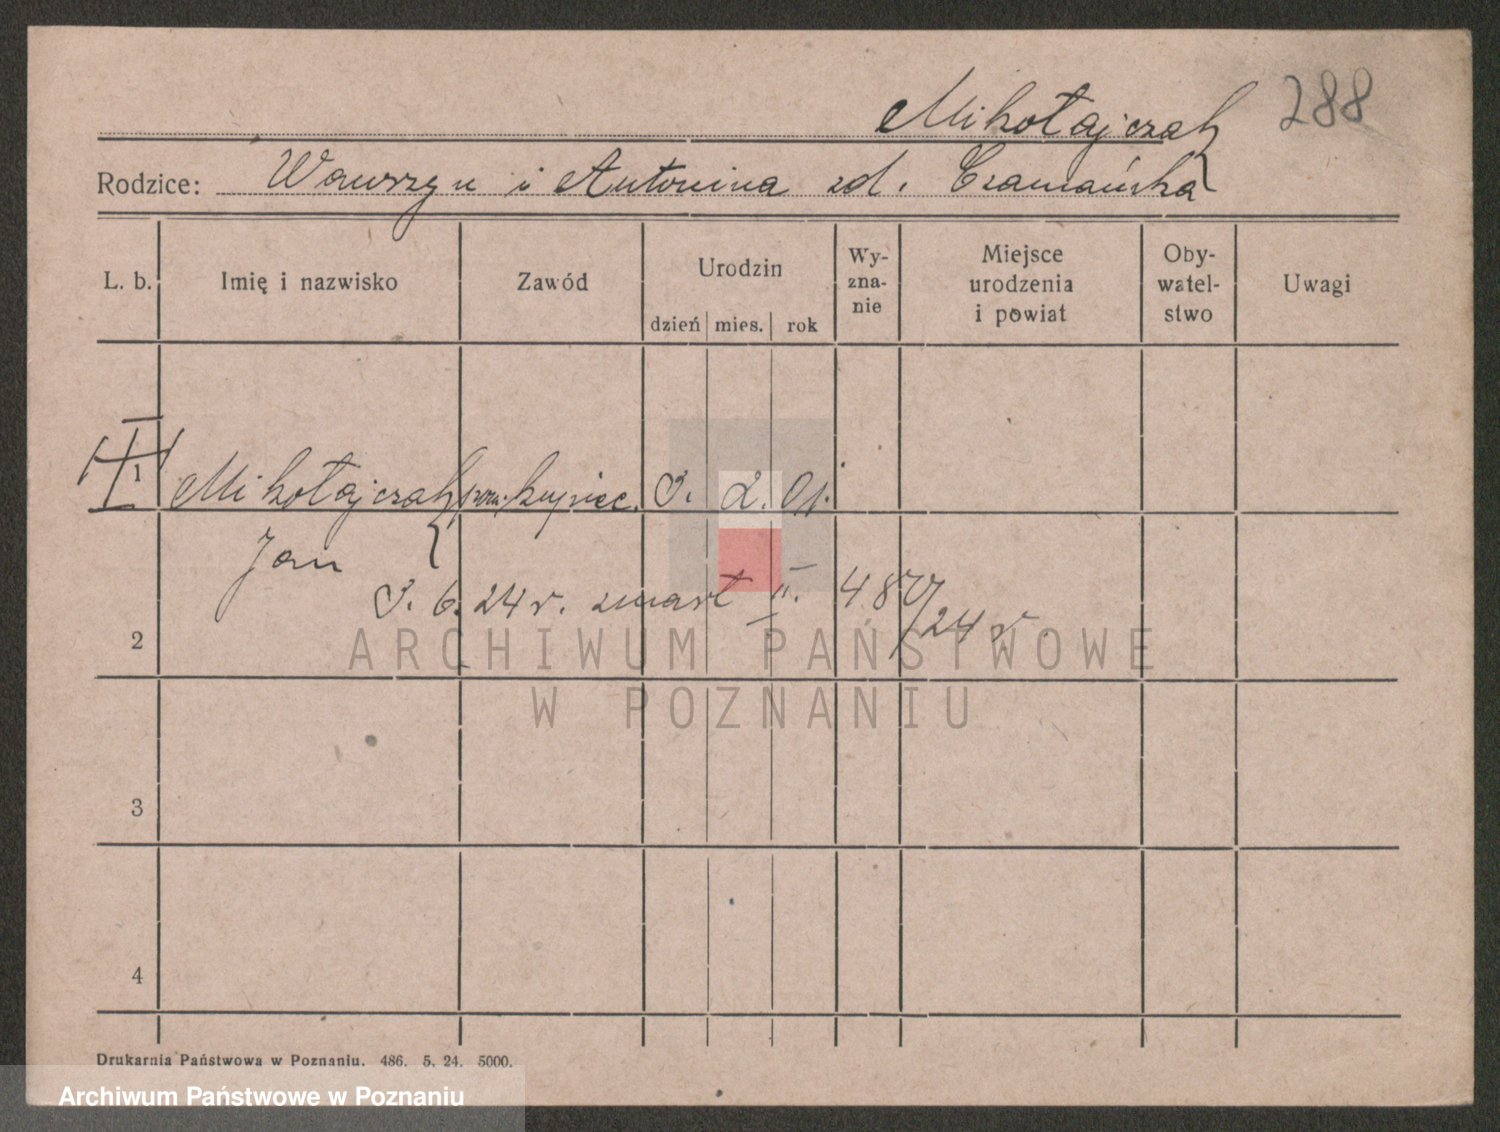 Mikołajczak 288
Rodzice: Wawrzyn i Antonina zd. Czamańska
L. b. Imię i nazwisko Zawód Urodzin dzień mies. rok Wy-zna-nie Miejsce urodzenia i powiat Oby-watel-stwo Uwagi
1 Mikołajczak pom. kupiec. 3. 2. 01.
Jan
3. 6. 24 r. zmarł II. 480/24 r.
2
ARCHIWUM PAŃSTWOWE
W POZNANIU
3
4
Drukarnia Państwowa w Poznaniu. 486. 5. 24. 5000.
Archiwum Państwowe w Poznaniu